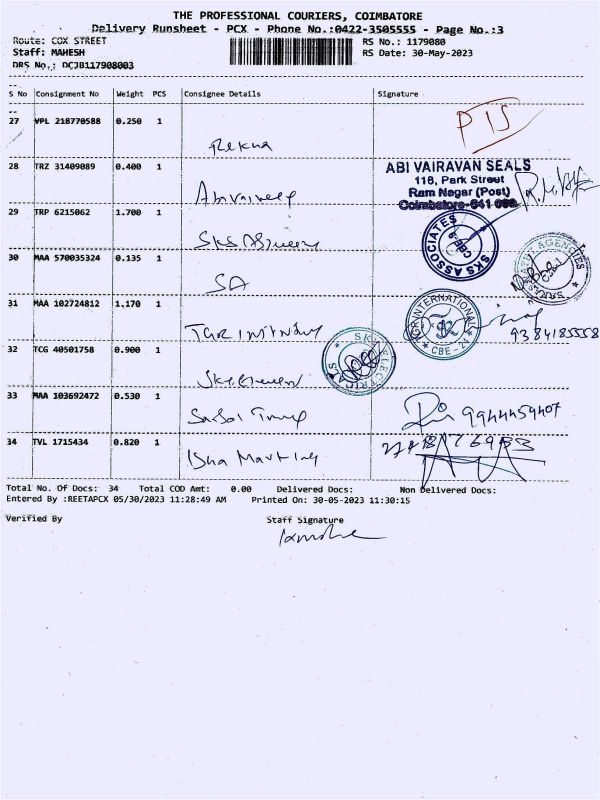 THE PROFESSIONAL COURIERS, COIMBATORE
Delivery Runsheet - PCX - Phone No.:0422-3505555 - Page No.:3
Route: COX STREET RS No.: 1179080
Staff: MAHESH RS Date: 30-May-2023
DRS No.: DCJB117908003
S No Consignment No Weight PCS Consignee Details Signature
27 VPL 218770588 0.250 1
PIS
Rekha
28 TRZ 31409089 0.400 1
ABI VAIRAVAN SEALS
116, Park Street
Ram Nagar (Post)
Coimbatore-641 009.
29 TRP 6215062 1.700 1
SKS ASSOCIATES
CBE-9
30 MAA 570035324 0.135 1
AGENCIES
SA
31 MAA 102724812 1.170 1
INTERNATIONAL
CBE-24
9384185558
32 TCG 40501758 0.900 1
ELECTRICALS
33 MAA 103692472 0.530 1
9944459407
34 TVL 1715434 0.820 1
Isha Marking
Total No. Of Docs: 34 Total COD Amt: 0.00 Delivered Docs: Non Delivered Docs:
Entered By :REETAPCX 05/30/2023 11:28:49 AM Printed On: 30-05-2023 11:30:15
Verified By Staff Signature